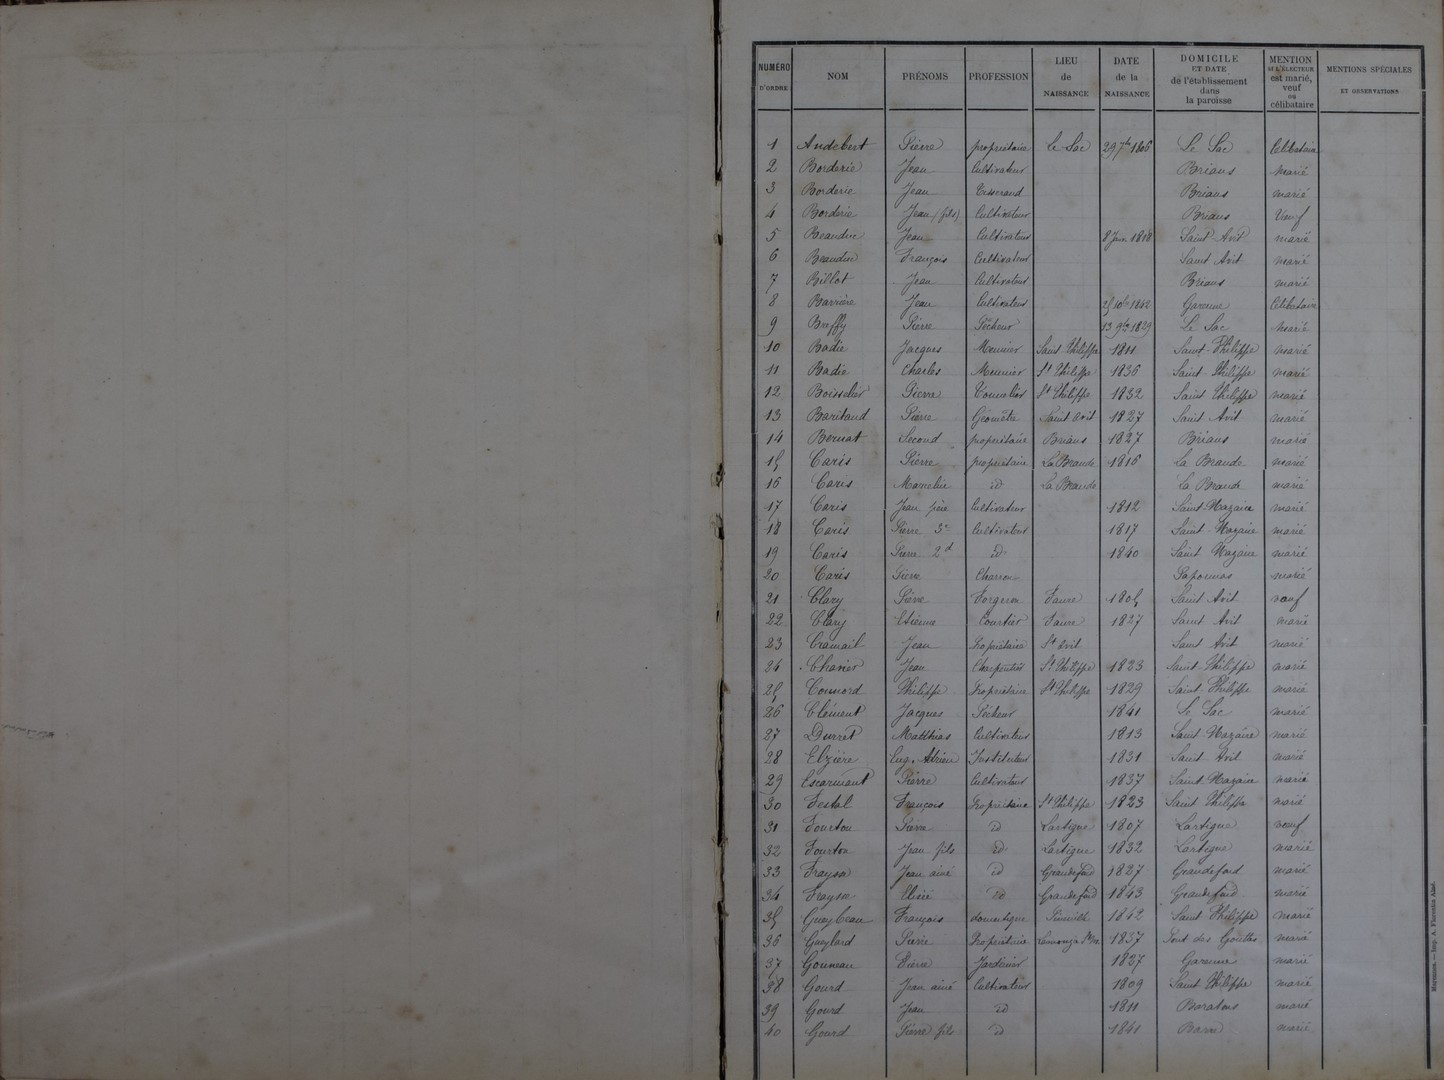 NUMÉRO D'ORDRE | NOM | PRÉNOMS | PROFESSION | LIEU de NAISSANCE | DATE de la NAISSANCE | DOMICILE ET DATE de l'établissement dans la paroisse | MENTION si L'ÉLECTEUR est marié, veuf ou célibataire | MENTIONS SPÉCIALES ET OBSERVATIONS
1 Audebert Pierre propriétaire Le Sac 29 7bre 1806 Le Sac Célibataire
2 Borderie Jean Cultivateur Brians marié
3 Borderie Jean Tisserand Brians marié
4 Borderie Jean (fils) Cultivateur Brians Veuf
5 Jean Cultivateur Saint Avit marié
6 François Cultivateur Saint Avit marié
7 Billot Jean Cultivateur Brians marié
8 Barrière Jean Cultivateur 25 10bre 1842 Garenne Célibataire
9 Breffy Pierre Pêcheur 13 9bre 1829 Le Sac marié
10 Badie Jacques Meunier Saint Philippe 1811 Saint-Philippe marié
11 Badie Charles Meunier St Philippe 1836 Saint-Philippe marié
12 Boisselier Pierre Tonnelier St Philippe 1832 Saint Philippe marié
13 Baritaud Pierre Géomètre Saint Avit 1827 Saint Avit marié
14 Bernat Second propriétaire Brians 1827 Brians marié
15 Caris Pierre propriétaire La Brande 1816 La Brande marié
16 Caris id La Brande La Brande marié
17 Caris Jean père Cultivateur 1812 Saint-Nazaire marié
18 Caris Pierre Cultivateur 1817 Saint Nazaire marié
19 Caris Pierre 2d id 1840 Saint Nazaire marié
20 Caris Pierre Charron marié
21 Clary Pierre Forgeron Faure 1805 Saint Avit veuf
22 Clary Etienne Courtier Faure 1827 Saint Avit marié
23 Cramail Jean Propriétaire St Avit Saint Avit marié
24 Jean Charpentier St Philippe 1823 Saint-Philippe marié
25 Connord Philippe Propriétaire St Philippe 1829 Saint Philippe marié
26 Clément Jacques Pêcheur 1841 Le Sac marié
27 Durret Matthias Cultivateur 1813 Saint Nazaire marié
28 Elzière Eug. Adrien Instituteur 1831 Saint Avit marié
29 Escarmant Pierre Cultivateur 1837 Saint Nazaire marié
30 Festal François Propriétaire St Philippe 1823 Saint Philippe marié
31 Fourton Pierre id Lartigue 1807 Lartigue veuf
32 Fourton Jean fils id Lartigue 1832 Lartigue marié
33 Jean ainé id Grandefond 1827 Grandefond marié
34 id Grandefond 1843 Grandefond marié
35 François domestique 1842 Saint Philippe marié
36 Gaylard Pierre Propriétaire 1837 marié
37 Gouneau Pierre Jardinier 1827 Garenne marié
38 Gourd Jean ainé Cultivateur 1809 Saint Philippe marié
39 Gourd Jean id 1811 marié
40 Gourd Pierre fils id 1841 Barre marié
Marmande. — Imp. A. Florentin Aîné.